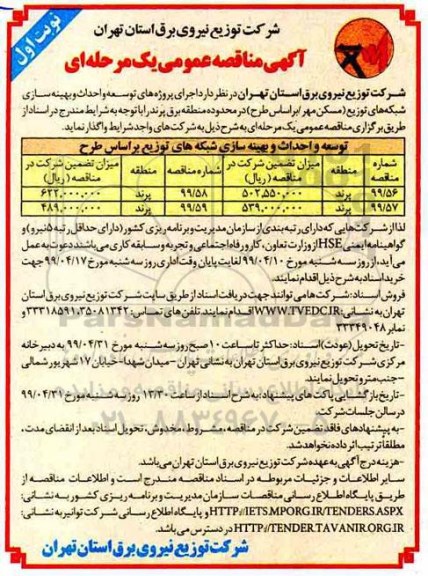 نوبت اول
شرکت توزیع نیروی برق استان تهران
آگهی مناقصه عمومی یک مرحله ای
شرکت توزیع نیروی برق استان تهران در نظر دارد اجرای پروژه های توسعه و احداث و بهینه سازی
شبکه های توزیع (مسکن مهر/براساس طرح) در محدوده منطقه برق پرند را با توجه به شرایط مندرج در اسناد از
طریق برگزاری مناقصه عمومی یک مرحله ای به شرح ذیل به شرکت های واجد شرایط واگذار نماید.
توسعه و احداث و بهینه سازی شبکه های توزیع براساس طرح
شماره مناقصه | منطقه | میزان تضمین شرکت در مناقصه (ریال) | شماره مناقصه | منطقه | میزان تضمین شرکت در مناقصه (ریال)
۹۹/۵۶ | پرند | ۵۰۲,۵۵۰,۰۰۰ | ۹۹/۵۸ | پرند | ۶۲۲,۰۰۰,۰۰۰
۹۹/۵۷ | پرند | ۵۳۹,۰۰۰,۰۰۰ | ۹۹/۵۹ | پرند | ۴۸۹,۰۰۰,۰۰۰
لذا از شرکت هایی که دارای رتبه بندی از سازمان مدیریت و برنامه ریزی کشور (دارای حداقل رتبه ۵ نیرو) و
گواهینامه ایمنی HSE از وزارت تعاون، کار و رفاه اجتماعی و تجربه و سابقه کاری می باشند دعوت به عمل
می آید، از روز سه شنبه مورخ ۹۹/۰۴/۱۰ لغایت پایان وقت اداری روز سه شنبه مورخ ۹۹/۰۴/۱۷ جهت
خرید اسناد به شرح ذیل اقدام نمایند.
فروش اسناد: شرکت ها می توانند جهت دریافت اسناد از طریق سایت شرکت توزیع نیروی برق استان
تهران به نشانی: WWW.TVEDC.IR اقدام نمایند. تلفن های تماس: ۳۵۰۸۱۳۴۲، ۳۳۳۱۸۵۹۱ و
نمابر ۳۳۳۴۹۰۴۸
-تاریخ تحویل (عودت) اسناد: حداکثر تا ساعت ۱۰ صبح روز سه شنبه مورخ ۹۹/۰۴/۳۱ به دبیرخانه
مرکزی شرکت توزیع نیروی برق استان تهران به نشانی تهران - میدان شهدا - خیابان ۱۷ شهریور شمالی
- جنب مترو تحویل نمایند.
-تاریخ بازگشایی پاکت های پیشنهاد به شرح اسناد از ساعت ۱۳/۳۰ روز سه شنبه مورخ ۹۹/۰۴/۳۱
در سالن جلسات شرکت.
-به پیشنهادهای فاقد تضمین شرکت در مناقصه، مشروط، مخدوش، تحویل اسناد بعد از انقضای مدت،
مطلقا ترتیب اثر داده نخواهد شد.
-هزینه درج آگهی به عهده شرکت توزیع نیروی برق استان تهران می باشد.
سایر اطلاعات و جزئیات مربوطه در اسناد مناقصه مندرج است و اطلاعات مناقصه از
طریق پایگاه اطلاع رسانی مناقصات سازمان مدیریت و برنامه ریزی کشور به نشانی:
HTTP//IETS.MPORG.IR/TENDERS.ASPX و پایگاه اطلاع رسانی شرکت توانیر به نشانی:
HTTP//TENDER.TAVANIR.ORG.IR در دسترس می باشد.
شرکت توزیع نیروی برق استان تهران